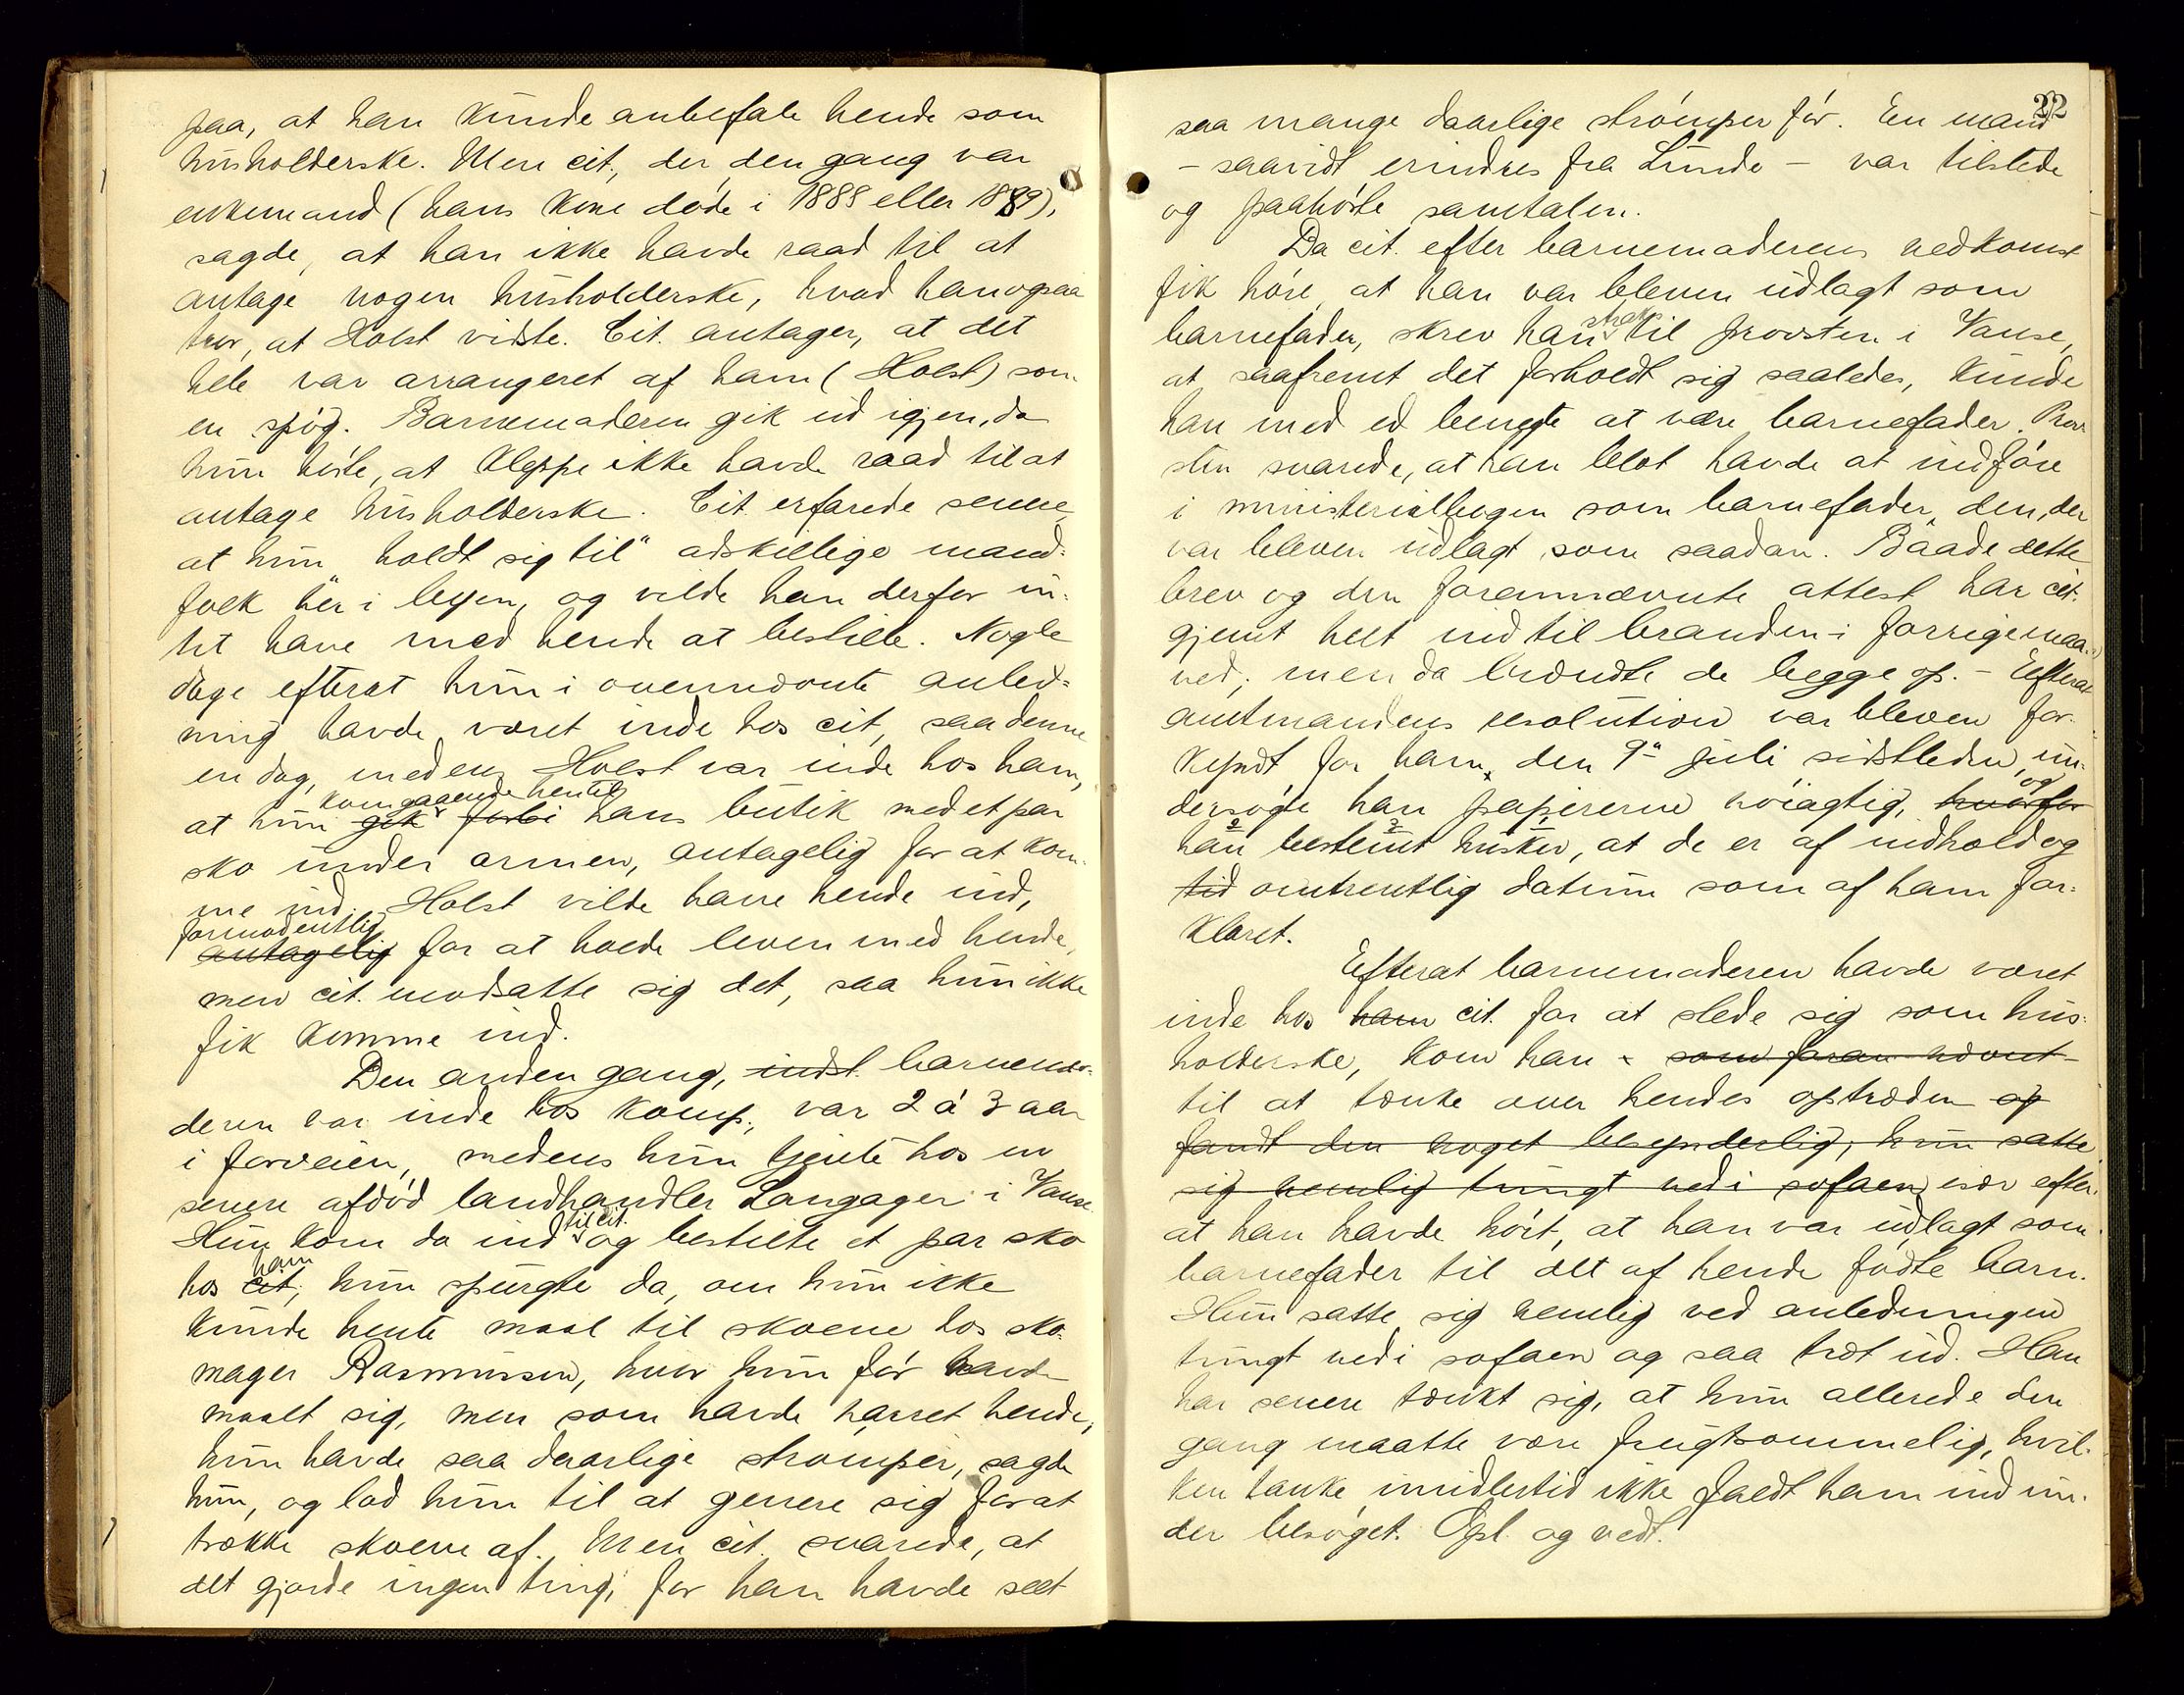 paa, at han kunde anbefale hende som
husholderske. Men cit., der den gang var
enkemand (hans kone døde i 1888 eller 1889),
sagde, at han ikke havde raad til at
antage nogen husholderske, hvad han ogsaa
tror, at Holst vidste. Cit. antager, at det
hele var arrangeret af ham (Holst) som
en spøg. Barnemoderen gik ud igjen, da
hun hørte, at Kleppe ikke havde raad til at
antage husholderske. Cit. erfarede senere,
at hun „holdt sig til“ adskillige mand-
folk her i byen, og vilde han derfor in-
tet have med hende at bestille. Nogle
dage efterat hun i ovennævnte anled-
ning havde været inde hos cit., saa denne
en dag, medens Holst var inde hos ham,
kom gaaende hentil
at hun gik forbi hans butik med et par
sko under armen, antagelig for at kom-
me ind. Holst vilde have hende ind,
formodentlig
antagelig for at holde leven med hende,
men cit. modsatte sig det, saa hun ikke
fik komme ind.
Den anden gang, indst. barnemo-
deren var inde hos komp., var 2 à 3 aar
i forveien, medens hun tjente hos en
senere afdød landhandler Langager i Vanse.
til cit.
Hun kom da ind og bestilte et par sko
ham
hos cit.; hun spurgte da, om hun ikke
kunde hente maal til skoene hos sko-
mager Rasmussen, hvor hun før havde
maalt sig, men som havde narret hende;
hun havde saa daarlige strømper, sagde
hun, og lod hun til at genere sig for at
trække skoene af. Men cit. svarede, at
det gjorde ingen ting, for han havde seet
22
saa mange daarlige strømper før. En mand
– saavidt erindres fra Lunde – var tilstede
og paahørte samtalen.
Da cit. efter barnemoderens nedkomst
fik høre, at han var bleven udlagt som
strax
barnefader, skrev han til provsten i Vanse,
at saafremt det forholdt sig saaledes, kunde
han med ed benegte at være barnefader. Prov-
sten svarede, at han blot havde at indføre
i ministerialbogen som barnefader den, der
var bleven udlagt som saadan. Baade dette
brev og den forannævnte attest har cit.
gjemt helt indtil branden i forrige maa-
ned; men da brændte de begge op. – Efterat
amtmandens resolution var bleven for-
kyndt for ham, den 9de juli sidstleden, un-
og
dersøgte han papirerne nøiagtig, hvorfor
2 3
han bestemt husker, at de er af indhold og
tid omtrentlig datum som af ham for-
klaret.
Efterat barnemoderen havde været
inde hos ham cit. for at stede sig som hus-
holderske, kom han som foran nævnt
til at tænke over hendes optræden og
fandt den noget besynderlig; hun satte
sig nemlig tungt ned i sofaen, især efter-
at han havde hørt, at han var udlagt som
barnefader til det af hende fødte barn.
Hun satte sig nemlig ved anledningen
tungt ned i sofaen og saa træt ud. Han
har senere tænkt sig, at hun allerede den
gang maatte være frugtsommelig, hvil-
ken tanke imidlertid ikke faldt ham ind un-
der besøget. Opl. og vedt.